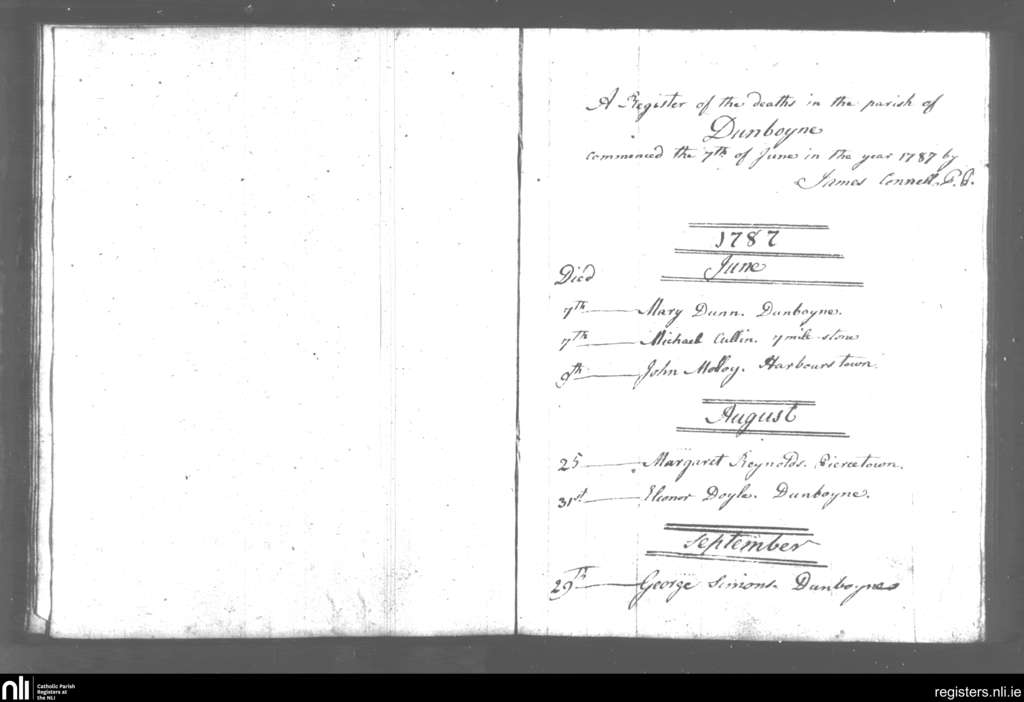 A Register of the deaths in the parish of
Dunboyne
commenced the 7th of June in the year 1787 by
James Connell P.P.
1787
June
Died
7th Mary Dunn. Dunboyne.
7th Michael Cullin. 7 mile stone
9th John Molloy. Harbourstown.
August
25 Margaret Reynolds. Piercetown.
31st Eleonor Doyle. Dunboyne.
September
29th George Simons. Dunboyne
nli Catholic Parish
Registers at
the NLI
registers.nli.ie